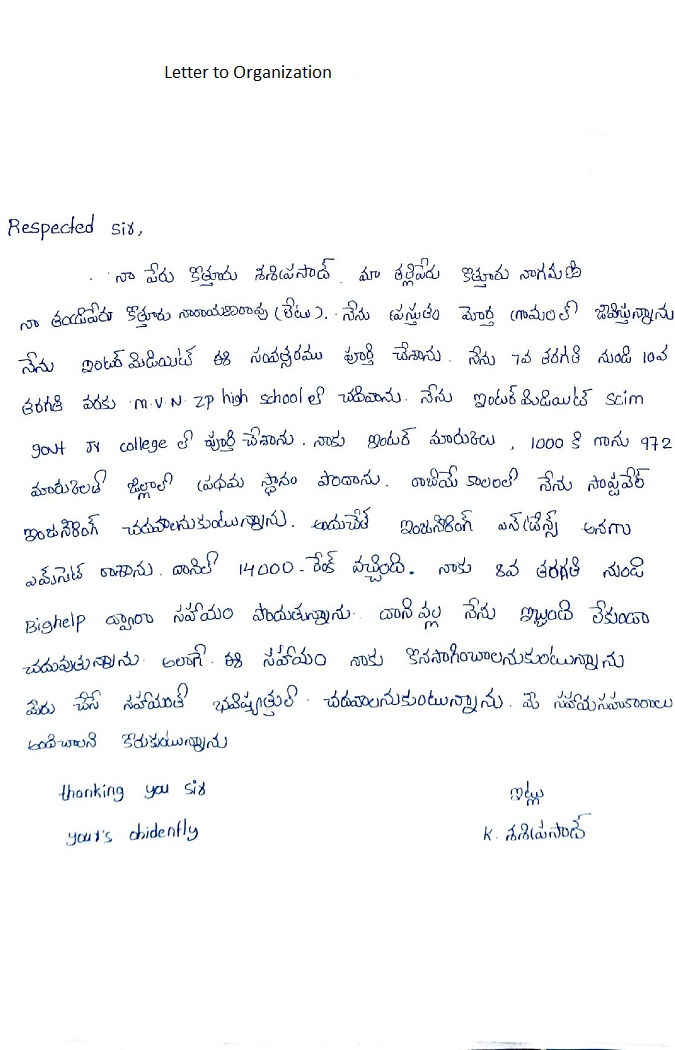 Letter to Organization
Respected sir,
నా పేరు కొత్తూరు శశిప్రసాద్. మా తల్లిపేరు కొత్తూరు నాగమణి
నా తండ్రిపేరు కొత్తూరు నారాయణరావు (లేటు). నేను ప్రస్తుతం మోర్త గ్రామంలో జీవిస్తున్నాను
నేను ఇంటర్ మిడియట్ ఈ సంవత్సరము పూర్తి చేశాను. నేను 7వ తరగతి నుండి 10వ
తరగతి వరకు M.V.N. ZP high school లో చదివాను. నేను ఇంటర్ మిడియట్ scim
govt Jr college లో పూర్తి చేశాను. నాకు ఇంటర్ మారుకులు, 1000 కి గాను 972
మారుకులతో జిల్లాలో ప్రథమ స్థానం పొందాను. రాబోయే కాలంలో నేను సాఫ్టవేర్
ఇంజనీరింగ్ చదవాలనుకుంటున్నాను. అందుచేత ఇంజనీరింగ్ ఎన్ట్రన్స్ అనగా
ఎమ్‌సెట్ రాశాను. దానిలో 14000 - రేంక్ వచ్చింది. నాకు 8వ తరగతి నుండి
Bighelp ద్వారా సహాయం పొందుతున్నాను. దాని వల్ల నేను ఇబ్బంది లేకుండా
చదువుతున్నాను. అలాగే ఈ సహాయం నాకు కొనసాగించాలనుకుంటున్నాను
మీరు చేసే సహాయంతో భవిష్యత్తులో చదవాలనుకుంటున్నాను. మీ సహాయసహకారాలు
అందించాలని కోరుకుంటున్నాను
thanking you sir
ఇట్లు
your's obidently
K. శశిప్రసాద్